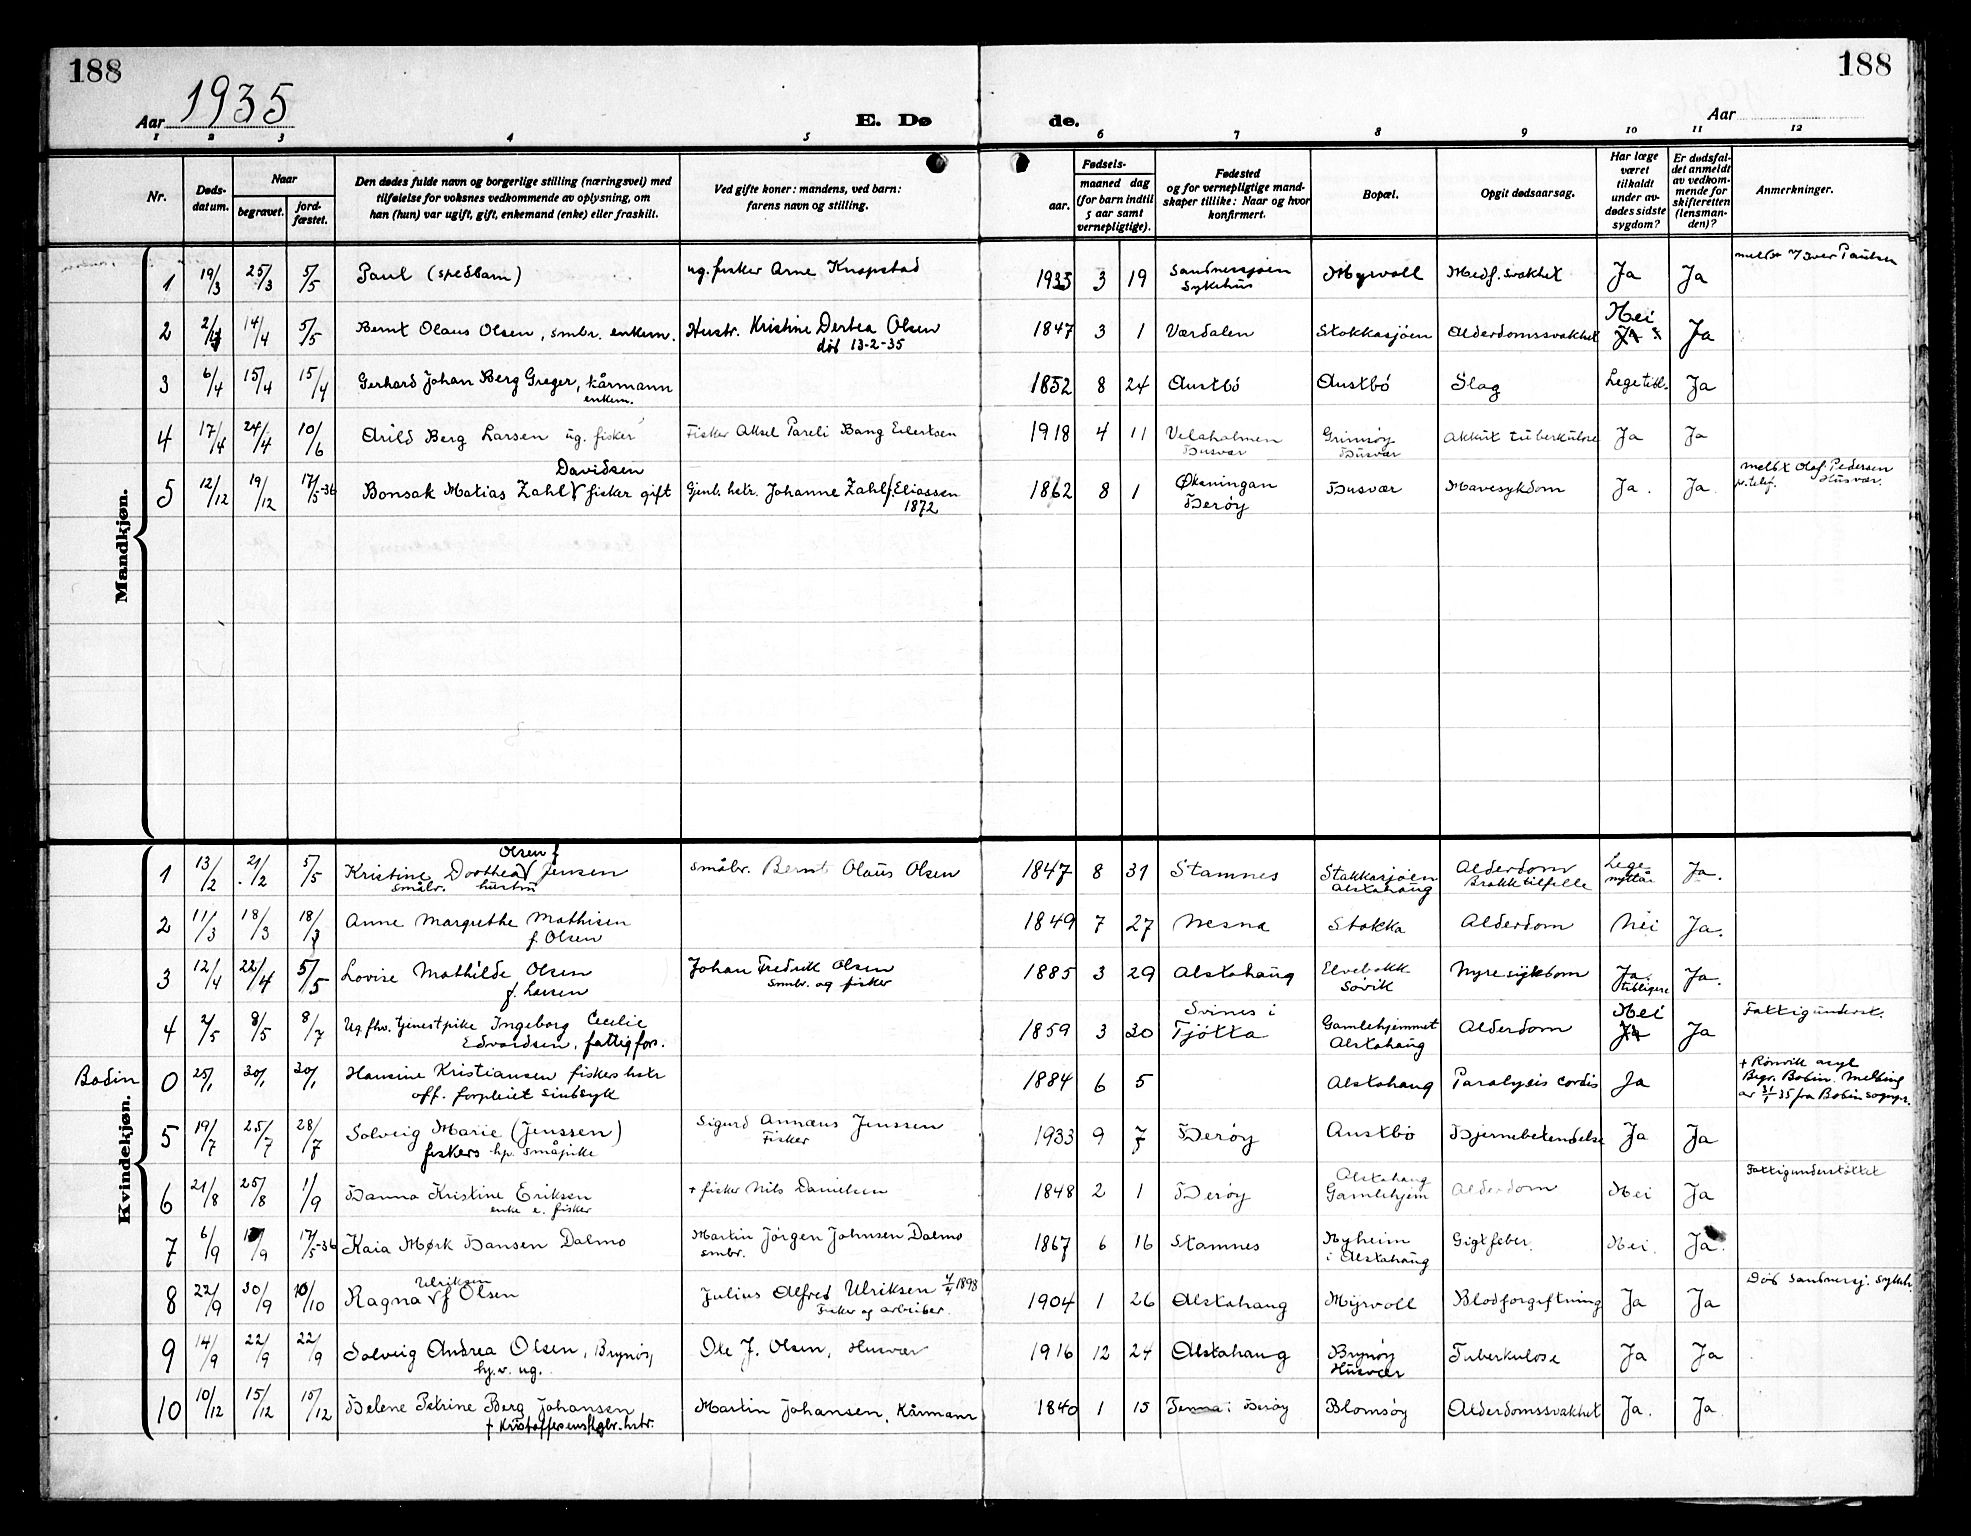 188
188
Aar 1935
E. Dø
de.
Aar
1 2 3 4 5 6 7 8 9 10 11 12
Nr.
Døds-
datum.
Naar
begravet.
jord-
fæstet.
Den dødes fulde navn og borgerlige stilling (næringsvei) med
tilføielse for voksnes vedkommende av oplysning, om
han (hun) var ugift, gift, enkemand (enke) eller fraskilt.
Ved gifte koner: mandens, ved barn:
farens navn og stilling.
Fødsels-
aar.
maaned dag
(for barn indtil
5 aar samt
vernepligtige).
Fødested
og for vernepligtige mand-
skaper tillike: Naar og hvor
konfirmert.
Bopæl.
Opgit dødsaarsag.
Har læge
været
tilkaldt
under av-
dødes sidste
sygdom?
Er dødsfal-
det anmeldt
av vedkom-
mende for
skifteretten
(lensman-
den)?
Anmerkninger.
Mandkjøn.
1 19/3 25/3 5/5 Paul (spedbarn) ug. fisker Arne Knapstad 1935 3 19 Sandnessjøen Sykehus Myrvoll Medf. svakhet Ja Ja meldt v/ Iver Paulsen
2 14/4 5/5 Bernt Olaus Olsen, smbr. enkem. Hustr. Kristine Dortea Olsen
død 13-2-35 1847 3 1 Værdalen Stokkasjøen Alderdomssvakhet Nei Ja
3 6/4 15/4 15/4 Gerhard Johan Berg Greger, kårmann
enkem. 1852 8 24 Austbø Austbø Slag Lege tidl. Ja
4 17/4 24/4 10/6 Arild Berg Larsen ug. fisker Fisker Aksel Pareli Bang Eilertsen 1918 4 11 Velaholmen
Husvær Grimsøy
Husvær Akkut tuberkulose Ja Ja
5 12/12 19/12 17/5-36 Bonsak Matias Zahl Davidsen fisker gift Gjenl. hstr. Johanne Zahl f. Eliassen
1872 1862 8 1 Øksningan
Herøy Husvær Mavesykdom Ja. Ja. meldt Olaf Pedersen
pr. telef. Husvær.
Kvindekjøn.
1 13/2 21/2 5/5 Kristine Dorthea Olsen f Jensen
småbr. hustru småbr. Bernt Olaus Olsen 1847 8 31 Stamnes Stokkasjøen
Alstahaug Alderdom
Brakktilfelle Lege
nyttår Ja.
2 11/3 18/3 18/3 Anne Margrethe Mathisen
f. Olsen 1849 7 27 Nesna Stokka Alderdom Nei Ja.
3 12/4 22/4 5/5 Lovise Mathilde Olsen
f. Larsen Johan Fredrik Olsen
smbr. og fisker 1885 3 29 Alstahaug Elvebakk
Søvik Nyresykdom Ja.
tidligere Ja.
4 2/5 8/5 8/7 Ug. fhv. tjenestpike Ingeborg Cecilie
Edvardsen, fattigfor. 1859 3 30 Svines i
Tjøtta Gamlehjemmet
Alstahaug Alderdom Nei Ja Fattigunderst.
Bodin 0 25/1 30/1 30/1 Hansine Kristiansen fiskers hstr
off. forpleiet sindsyk 1884 6 5 Alstahaug Paralysis cordis Ja + Rønvik asyl
Begr. Bodin. Melding
av 31/1 35 fra Bodin sogepr.
5 19/7 25/7 28/7 Solveig Marie (Jenssen)
fiskers hp. småpike Sigurd Annæus Jenssen
Fisker 1933 9 7 Herøy Austbø Hjernebetendelse Ja Ja
6 21/8 25/8 1/9 Hanna Kristine Eriksen
enke e. fisker + fisker Nils Danielsen 1848 2 1 Herøy Alstahaug
Gamlehjem Alderdom Nei Ja Fattigunderstøttet
7 6/9 17/5-36 Kaia Mørk Hansen Dalmo Martin Jørgen Johnsen Dalmo
smbr. 1867 6 16 Stamnes Nyheim
i Alstahaug Gigtfeber. Nei. Ja.
8 22/9 30/9 10/10 Ragna Ulriksen f Olsen Julius Alfred Ulriksen 1898
Fisker og arbeider. 1904 1 26 Alstahaug Myrvoll Blodforgiftning Ja Ja Død Sandnessj. sykeh.
9 14/9 22/9 22/9 Solveig Andrea Olsen, Brynøy
hj.v. ug. Ole J. Olsen, Husvær 1916 12 24 Alstahaug Brynøy
Husvær Tuberkulose Ja Ja
10 10/12 15/12 15/12 Helene Petrine Berg Johansen
f Kristoffersens hstr. Martin Johansen, Kårmann 1840 1 15 Tenna i Herøy Blomsøy Alderdomssvakhet Ja. Ja